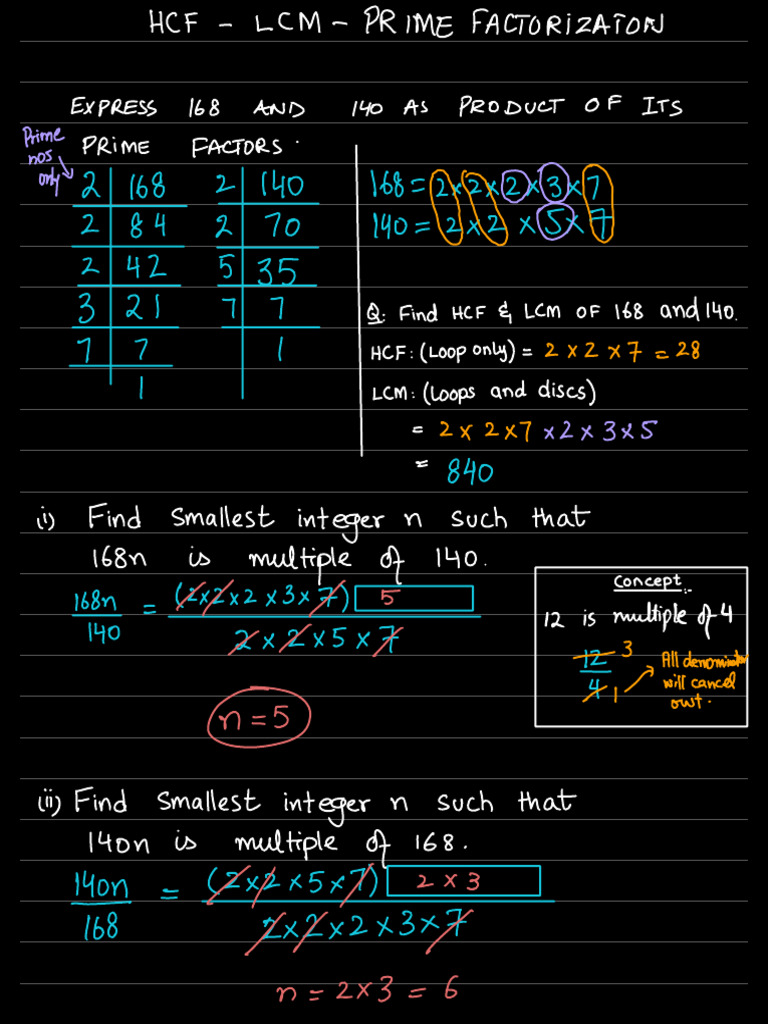 HCF - LCM - PRIME FACTORIZAION
EXPRESS 168 AND 140 AS PRODUCT OF ITS
PRIME FACTORS.
Prime
nos
only
2 | 168
2 | 84
2 | 42
3 | 21
7 | 7
1
2 | 140
2 | 70
5 | 35
7 | 7
1
168 = 2 × 2 × 2 × 3 × 7
140 = 2 × 2 × 5 × 7
Q: Find HCF & LCM OF 168 and 140.
HCF: (Loop only) = 2 × 2 × 7 = 28
LCM: (Loops and discs)
= 2 × 2 × 7 × 2 × 3 × 5
= 840
(i) Find smallest integer n such that
168n is multiple of 140.
168n/140 = (2×2×2×3×7) 5 / 2×2×5×7
n = 5
Concept.
12 is multiple of 4
12 3
4 1
All denominator
will cancel
owt.
(ii) Find smallest integer n such that
140n is multiple of 168.
140n/168 = (2×2×5×7) 2×3 / 2×2×2×3×7
n = 2×3 = 6